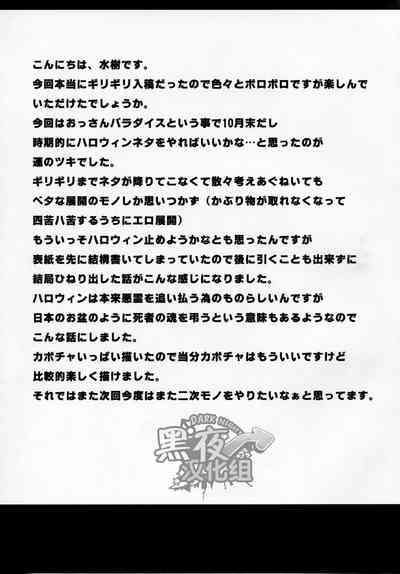 こんにちは、水樹です。
今回本当にギリギリ入稿だったので色々とボロボロですが楽しんで
いただけたでしょうか。
今回はおっさんパラダイスという事で10月末だし
時期的にハロウィンネタをやればいいかな…と思ったのが
運のツキでした。
ギリギリまでネタが降りてこなくて散々考えあぐねいても
ベタな展開のモノしか思いつかず（かぶり物が取れなくなって
四苦八苦するうちにエロ展開）
もういっそハロウィン止めようかなとも思ったんですが
表紙を先に結構書いてしまっていたので後に引くことも出来ずに
結局ひねり出した話がこんな感じになりました。
ハロウィンは本来悪霊を追い払う為のものらしいんですが
日本のお盆のように死者の魂を弔うという意味もあるようなので
こんな話にしました。
カボチャいっぱい描いたので当分カボチャはもういいですけど
比較的楽しく描けました。
それではまた次回今度はまた二次モノをやりたいなぁと思ってます。
DARK NIGHT
黑夜
汉化组